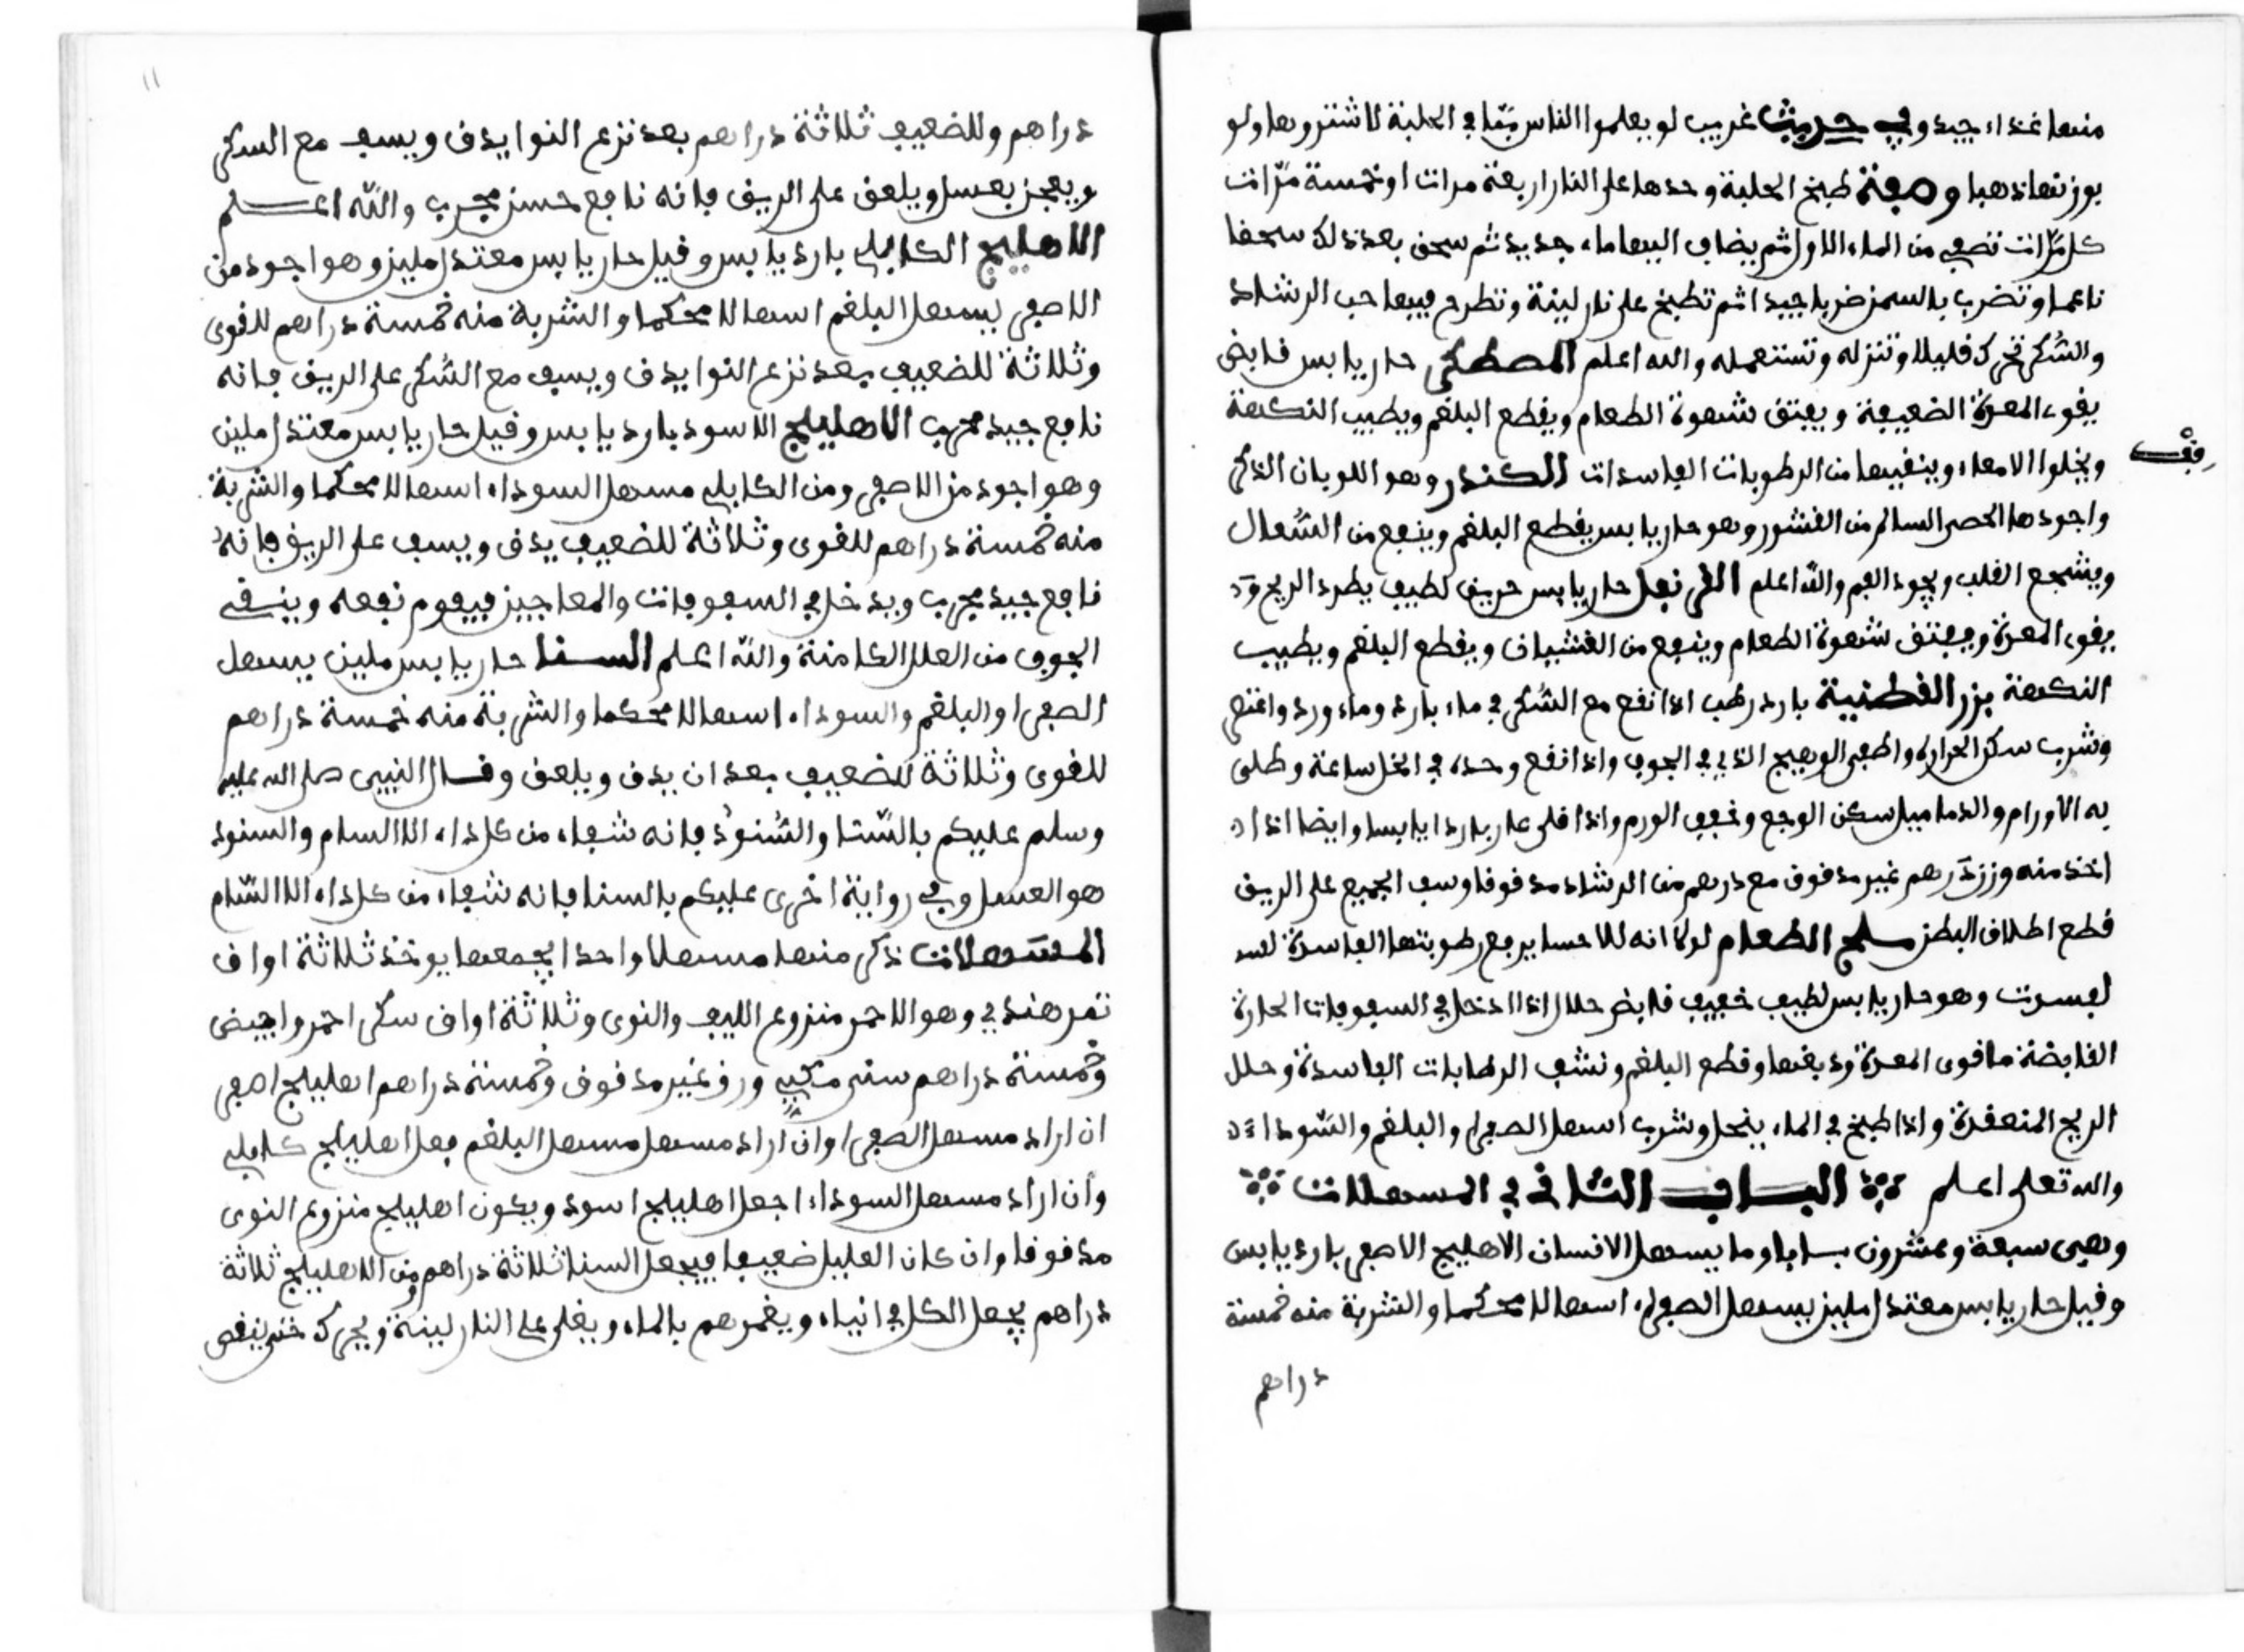 منها غذاء جيد وفي حديث غريب لو يعلموا الناس بما في الحلبة لاشتروها ولو
بوزنها ذهبا وصفة طبخ الحلبة وحدها على النار اربعة مرات او خمسة مرّات
كل مرّات تصفى من الماء الاول ثم يضاف اليها ماء جديد ثم سحق بعد ذلك سحقا
ناعما وتضرب بالسمن ضربا جيدا ثم تطبخ على نار لينة وتطرح فيها حب الرشاد
والسُكر تحرك قليلا وتنزله وتستعمله والله اعلم المصطكى حار يابس قابض
يقوى المعدة الضعيفة ويفتق شهوة الطعام ويقطع البلغم ويطيب النكهة
ويخلوا الامعاء وينقيها من الرطوبات الفاسدات الكندر وهو اللوبان الذكر
قف
واجودها الحصى السالم من القشور وهو حار يابس يقطع البلغم وينفع من السُعال
ويشجع القلب ويجود الفم والله اعلم القرنفل حار يابس حريف لطيف يطرد الريح
يقوى المعدة ويفتق شهوة الطعام وينفع من الغشيان ويقطع البلغم ويطيب
النكهة بزر القطنية بارد رطب اذا نقع مع السُكر في ماء بارد وماء ورد
وشرب سكن الحرارة واطفى الوهيج الذي في الجوف واذا نقع وحده في الخل ساعة وطلى
به الاورام والدماميل سكن الوجع وخفف الورم واذا قلى عار باردا يابسا وايضا اذا
اخذ منه وزن درهم غير مدقوق مع درهم من الرشاد مدقوقا وسف الجميع على الريق
قطع اطلاق البطن سلح الطعام لولا انه للاحسا يرفع رطوبتها الفاسدة لفسد
لفسدت وهو حار يابس لطيف خفيف قابض حلال اذا ادخل في السفوفات الحارة
القابضة ما قوى المعدة ودبغها وقطع البلغم ونشف الرطابات الفاسدة وحلل
الريح المنعقدة واذا طبخ في الماء ينحل وشرب اسهل الصفرا والبلغم والسّودا
والله تعلى اعلم الباب الثاني في المسهلات
وهي سبعة وعشرون بابا وما يسهل الانسان الاهليج الاصفر بارد يابس
وقيل حار يابس معتدل ملين يسهل الصفراء اسهالا محكما والشربة منه خمسة
دراهم
١١
دراهم وللضعيف ثلاثة دراهم بعد نزع النوا يدق ويسف مع السكر
ويعجن بعسل ويلعق على الريق فانه نافع حسن مجرب والله اعلم
الاهليج الكابلي بارد يابس وقيل حار يابس معتدل ملين وهو اجود من
الاصفر يسهل البلغم اسهالا محكما والشربة منه خمسة دراهم للقوى
وثلاثة للضعيف بعد نزع النوا يدق ويسف مع السُكر على الريق فانه
نافع جيد مجرب الاهليلج الاسود بارد يابس وقيل حار يابس معتدل ملين
وهو اجود من الاصفر ومن الكابلي مسهل السوداء اسهالا محكما والشربة
منه خمسة دراهم للقوى وثلاثة للضعيف يدق ويسف على الريق فانه
نافع جيد مجرب ويدخل في السفوفات والمعاجين فيقوم نفعه وينقى
الجوف من العلل الكامنة والله اعلم السنا حار يابس ملين يسهل
الصفرا والبلغم والسوداء اسهالا محكما والشربة منه خمسة دراهم
للقوى وثلاثة للضعيف بعد ان يدق ويلعق وقال النبي صلى الله عليه
وسلم عليكم بالسّنا والسُنوُد فانه شفاء من كل داء الا السام والسنود
هو العسل وفي رواية اخرى عليكم بالسنا فانه شفاء من كل داء الا السّام
المسهلات ذكر منها مسهلا واحدا يجمعها يوخذ ثلاثة اواق
تمر هندي وهو الاحمر منزوع الليف والنوى وثلاثة اواق سكر احمر وابيض
وخمسة دراهم سنى مكي ورق غير مدقوق وخمسة دراهم اهليلج اصفر
ان اراد مسهل الصفرا وان اراد مسهل مسهل البلغم فعل اهليلج كابلي
وان اراد مسهل السوداء اجعل اهليلج اسود ويكون اهليلج منزوع النوى
مدقوقا وان كان العليل ضعيفا فيجعل السنا ثلاثة دراهم ومن الاهليلج ثلاثة
دراهم يجعل الكل في انياء ويغمرهم بالماء ويغلى على النار لينة ويحرك حتى ينقص